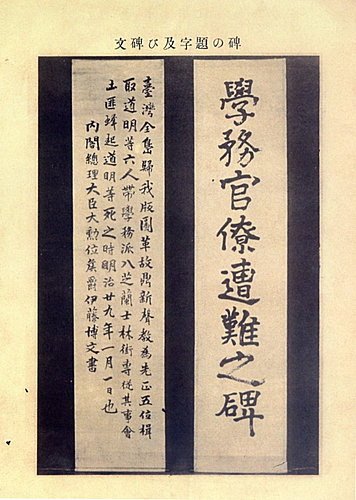 碑の題字及び碑文
學務官僚遭難之碑
臺灣全島歸我版圖革故鼎新聲教為先正五位楫
取道明等六人帶學務派八芝蘭士林街專從其事會
土匪蜂起道明等死之時明治廿九年一月一日也
內閣總理大臣大勳位侯爵伊藤博文書